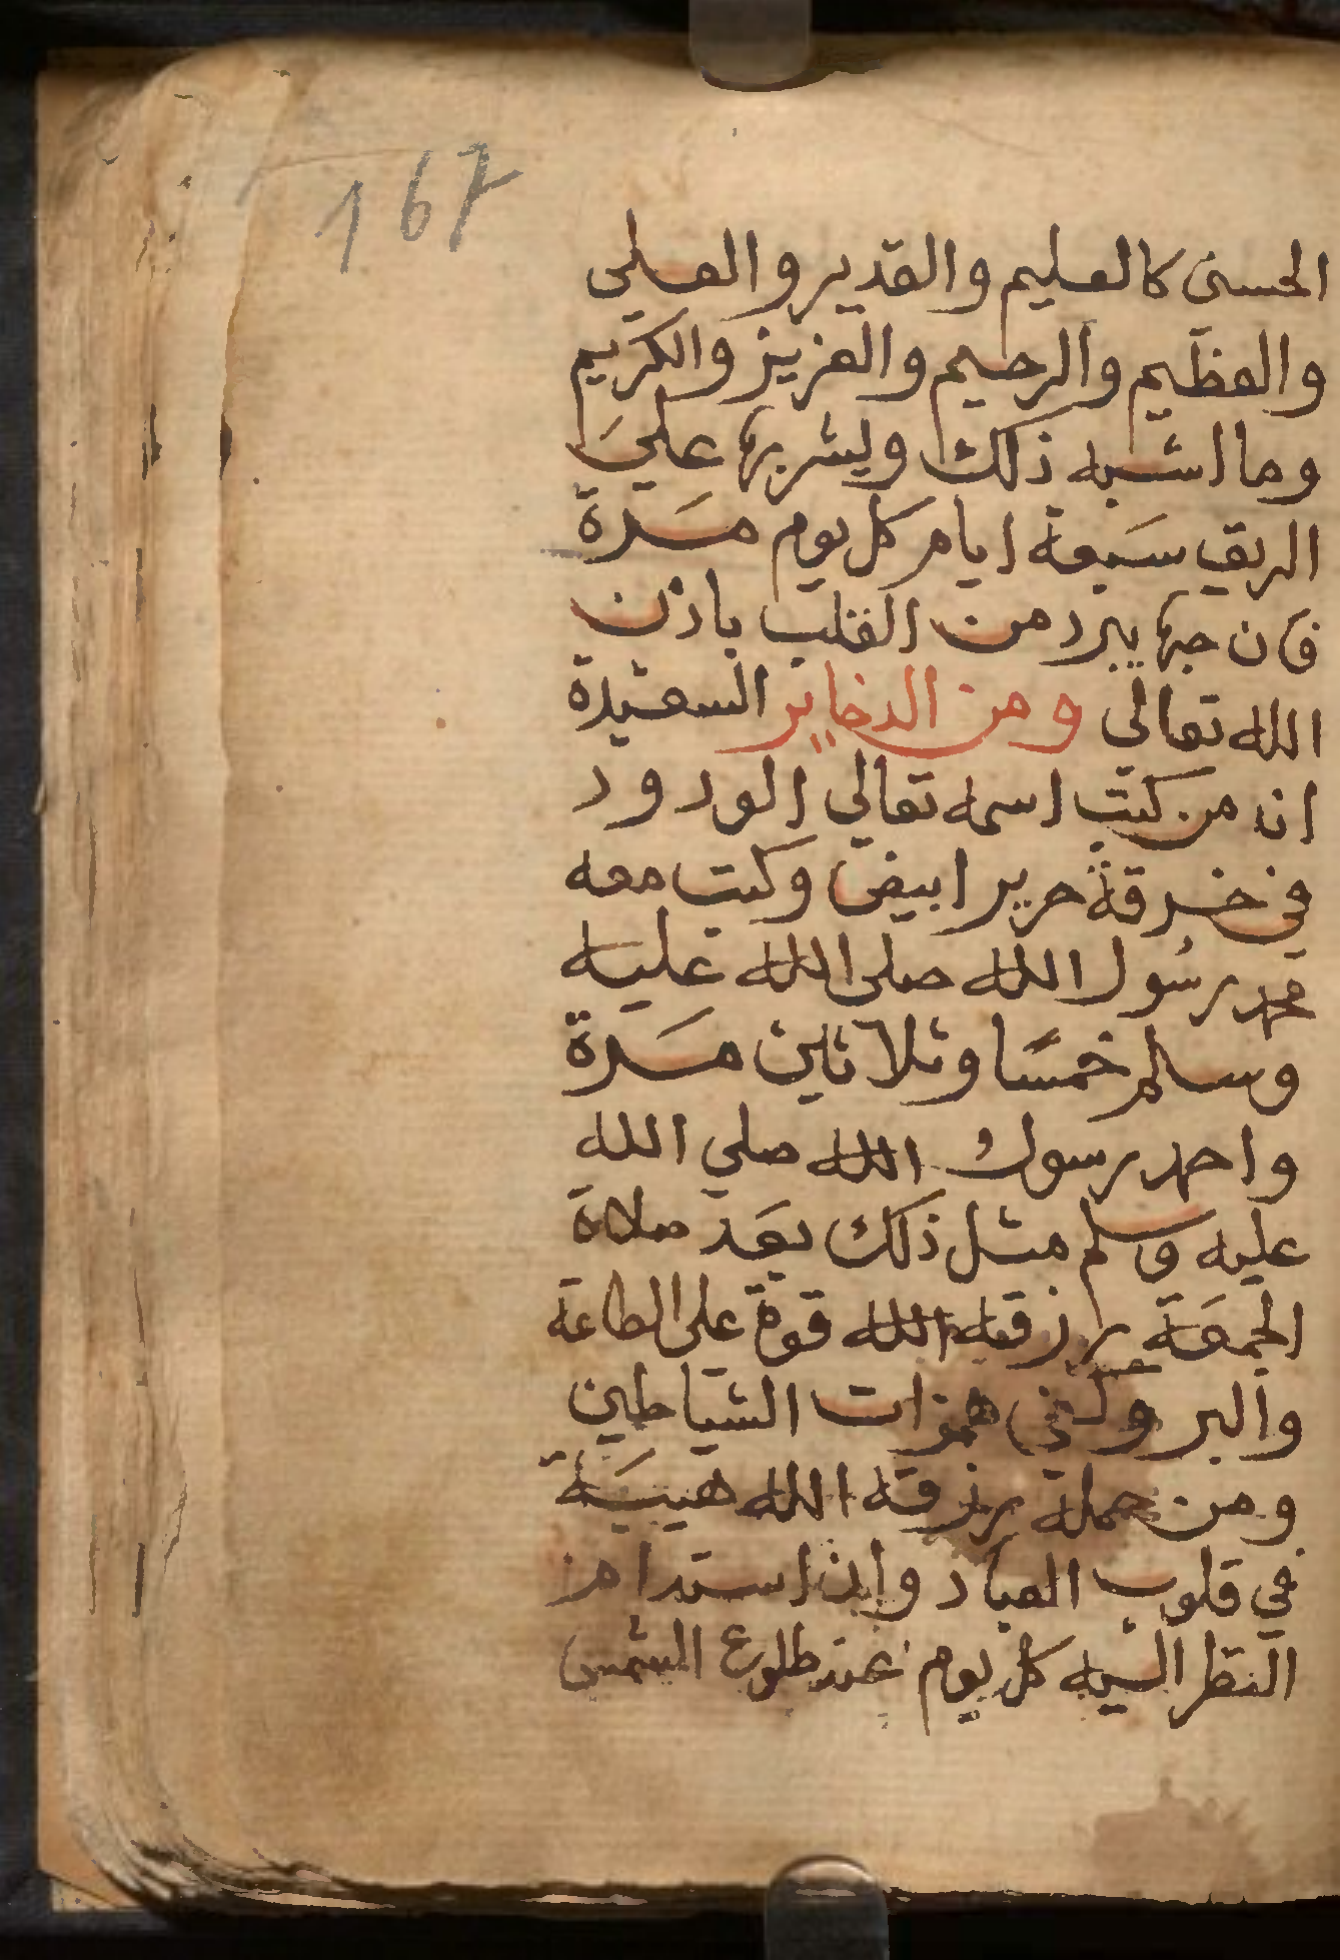 167
الحسنى كالعليم والقدير والعلي
والعظيم والرحيم والعزيز والكريم
وما اشبه ذلك ويشربها علي
الريق سبعة ايام كل يوم مرة
فان حبها يبرد من القلب باذن
الله تعالي ومن الدخاير السعيدة
انه من كتب اسمه تعالي الودود
في خرقة حرير ابيض وكتب معه
محمد رسول الله صلى الله عليه
وسلم خمسًا وثلاثين مرة
واحمد رسول الله صلي الله
عليه وسلم مثل ذلك بعد صلاة
الجمعة يرزقه الله قوة على الطاعة
والبر وكفي همزات الشياطين
ومن حمله يرزقه الله هيبة
في قلوب العباد وان استدام
النظر اليه كل يوم عند طلوع الشمس